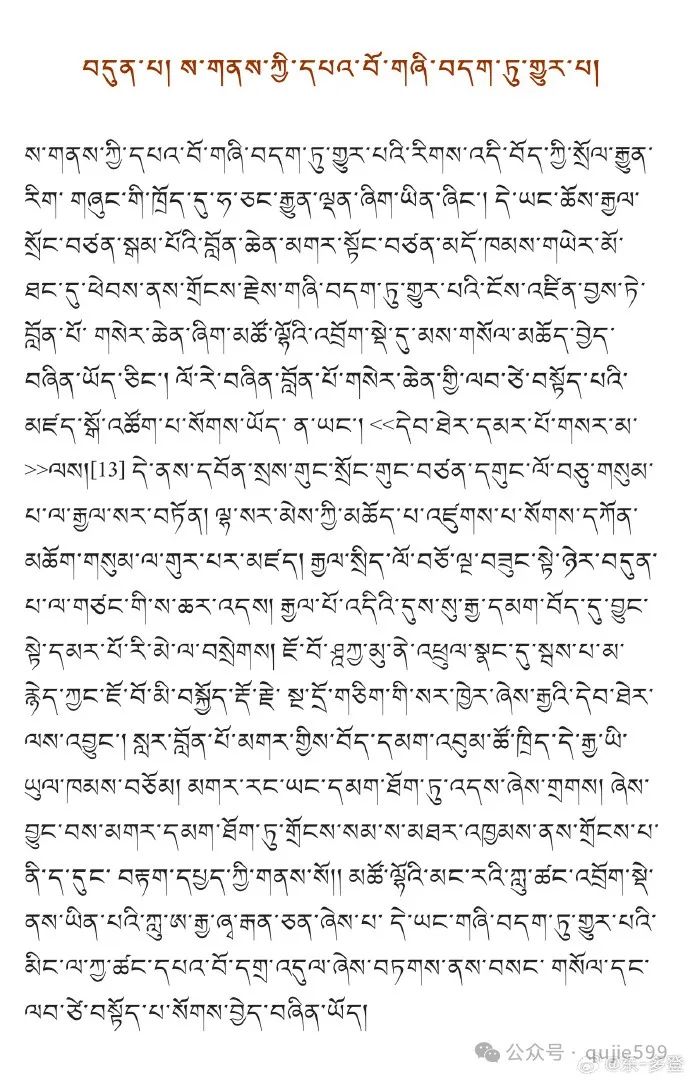 བདུན་པ། ས་གནས་ཀྱི་དཔའ་བོ་གཞི་བདག་ཏུ་གྱུར་པ།
ས་གནས་ཀྱི་དཔའ་བོ་གཞི་བདག་ཏུ་གྱུར་པའི་རིགས་འདི་བོད་ཀྱི་སྲོལ་རྒྱུན་
རིག་ གཞུང་གི་ཁྲོད་དུ་ཧ་ཅང་རྒྱུན་ལྡན་ཞིག་ཡིན་ཞིང་། དེ་ཡང་ཆོས་རྒྱལ་
སྲོང་བཙན་སྒམ་པོའི་བློན་ཆེན་མགར་སྟོང་བཙན་མདོ་ཁམས་གཡེར་མོ་
ཐང་དུ་ཕེབས་ནས་གྲོངས་རྗེས་གཞི་བདག་ཏུ་གྱུར་པའི་ངོས་འཛིན་བྱས་ཏེ་
བློན་པོ་ གསེར་ཆེན་ཞིག་མཚོ་ལྷོའི་འབྲོག་སྡེ་དུ་མས་གསོལ་མཆོད་བྱེད་
བཞིན་ཡོད་ཅིང་། ལོ་རེ་བཞིན་བློན་པོ་གསེར་ཆེན་གྱི་ལབ་ཙེ་བསྟོད་པའི་
མཛད་སྒོ་འཚོག་པ་སོགས་ཡོད་ ན་ཡང་། <<དེབ་ཐེར་དམར་པོ་གསར་མ་
>>ལས།[13] དེ་ནས་དབོན་སྲས་གུང་སྲོང་གུང་བཙན་དགུང་ལོ་བཅུ་གསུམ་
པ་ལ་རྒྱལ་སར་བཏོན། ལྷ་སར་མེས་ཀྱི་མཆོད་པ་འཛུགས་པ་སོགས་དཀོན་
མཆོག་གསུམ་ལ་གུར་པར་མཛད། རྒྱལ་སྲིད་ལོ་བཅོ་ལྔ་བཟུང་སྟེ་ཉེར་བདུན་
པ་ལ་གཙང་གི་ས་ཆར་འདས། རྒྱལ་པོ་འདིའི་དུས་སུ་རྒྱ་དམག་བོད་དུ་བྱུང་
སྟེ་དམར་པོ་རི་མེ་ལ་བསྲེགས། ཇོ་བོ་ཤཱཀྱ་མུ་ནེ་འཕྲུལ་སྣང་དུ་སྦས་པ་མ་
རྙེད་ཀྱང་ཇོ་བོ་མི་བསྐྱོད་རྡོ་རྗེ་ སྔ་དྲོ་གཅིག་གི་སར་ཁྱེར་ཞེས་རྒྱའི་དེབ་ཐེར་
ལས་འབྱུང་། སླར་བློན་པོ་མགར་གྱིས་བོད་དམག་འབུམ་ཚོ་ཁྲིད་དེ་རྒྱ་ཡི་
ཡུལ་ཁམས་བཅོམ། མགར་རང་ཡང་དམག་ཐོག་ཏུ་འདས་ཞེས་གྲགས། ཞེས་
བྱུང་བས་མགར་དམག་ཐོག་ཏུ་གྲོངས་སམ་ས་མཐར་འཁྱམས་ནས་གྲོངས་པ་
ནི་ད་དུང་ བརྟག་དཔྱད་ཀྱི་གནས་སོ།། མཚོ་ལྷོའི་མང་རའི་ཀླུ་ཚང་འབྲོག་སྡེ་
ནས་ཡིན་པའི་ཀླུ་ཨ་རྒྱ་ཞྭ་རྒན་ཅན་ཞེས་པ་ དེ་ཡང་གཞི་བདག་ཏུ་གྱུར་པའི་
མིང་ལ་ཀྱ་ཚང་དཔའ་བོ་དགྲ་འདུལ་ཞེས་བཏགས་ནས་བསང་ གསོལ་དང་
ལབ་ཙེ་བསྟོད་པ་སོགས་བྱེད་བཞིན་ཡོད།
公众号 · qujie599
@东-多登